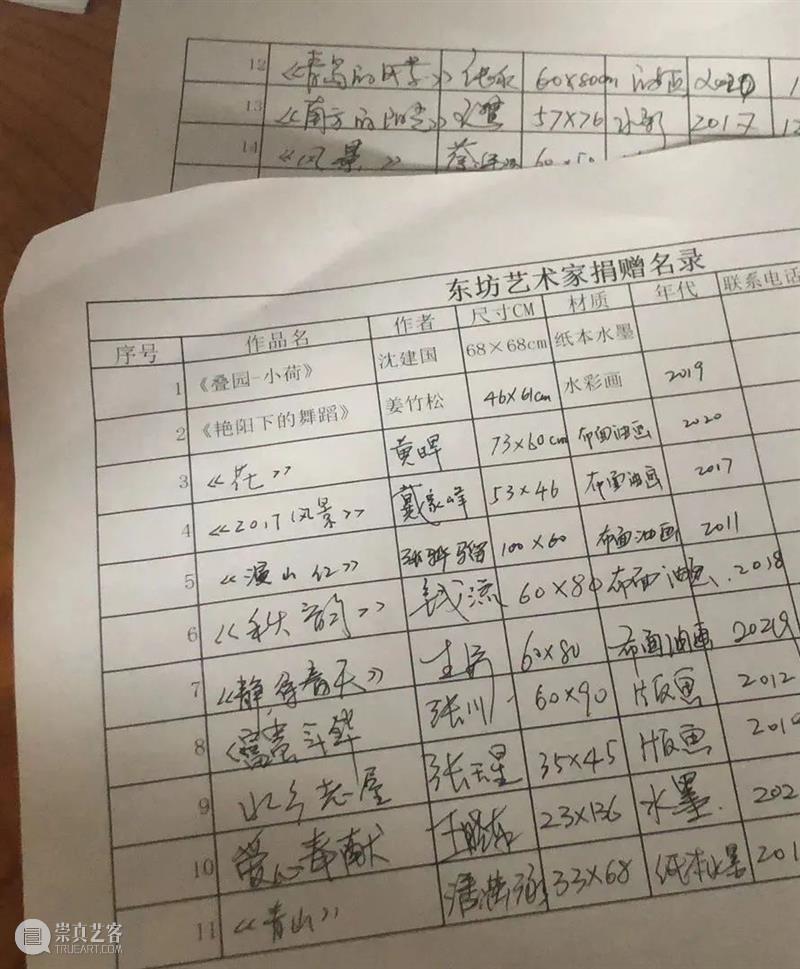 12 《青岛的》 60×80cm
13 《南方的阳光》 57×76 水彩 2017 12
14 《风景》
东坊艺术家捐赠名录
序号 作品名 作者 尺寸CM 材质 年代 联系电话
1 《叠园-小荷》 沈建国 68×68cm 纸本水墨
2 《艳阳下的舞蹈》 姜竹松 46×61cm 水彩画 2019
3 《花》 黄晖 73×60cm 布面油画 2020
4 《2017风景》 戴家峰 53×46 布面油画 2017
5 《演山红》 100×60 布面油画 2011
6 《秋韵》 钱流 60×80 布面油画 2018
7 《静待春天》 60×80 布面油画
8 《富贵 张川 60×90 版画 2012
9 水乡老屋 张天星 35×45 版画 201
10 爱心奉献 王晓东 23×136 水墨 202
11 《青山》 潘 33×68 纸本水墨 201
崇真艺客
TRUEART.COM